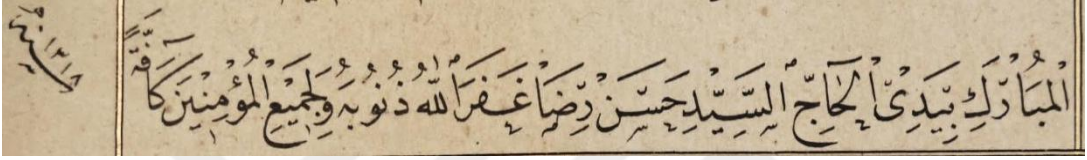 الْمُبَارَكِ بِيَدِىْ الْحَآجِّ السَّيِّدِ حَسَنْ رِضَا غَفَرَ اللّٰهُ ذُنُوبَهُ وَلِجَمِيْعِ الْمُؤْمِنِيْنَ كَآفَّةً
سنة